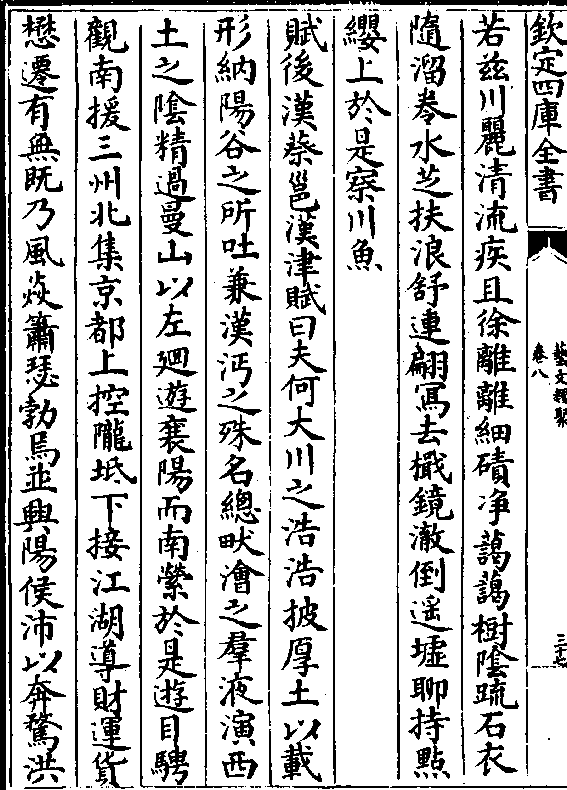 欽定四庫全書
藝文類聚
卷八
三十七
若兹川麗清流疾且徐離離細磧净藹藹樹陰疏石衣
隨溜卷水芝扶浪舒連翩寫去檝鏡澈倒遥墟聊持點
纓上於是察川魚
賦後漢蔡邕漢津賦曰夫何大川之浩浩披厚土以載
形納陽谷之所吐兼漢沔之殊名總畎澮之羣液演西
土之陰精過曼山以左廻遊襄陽而南縈於是遊目騁
觀南援三州北集京都上控隴坻下接江湖導財運貨
懋遷有無既乃風焱簫瑟勃焉並興陽侯沛以奔騖洪